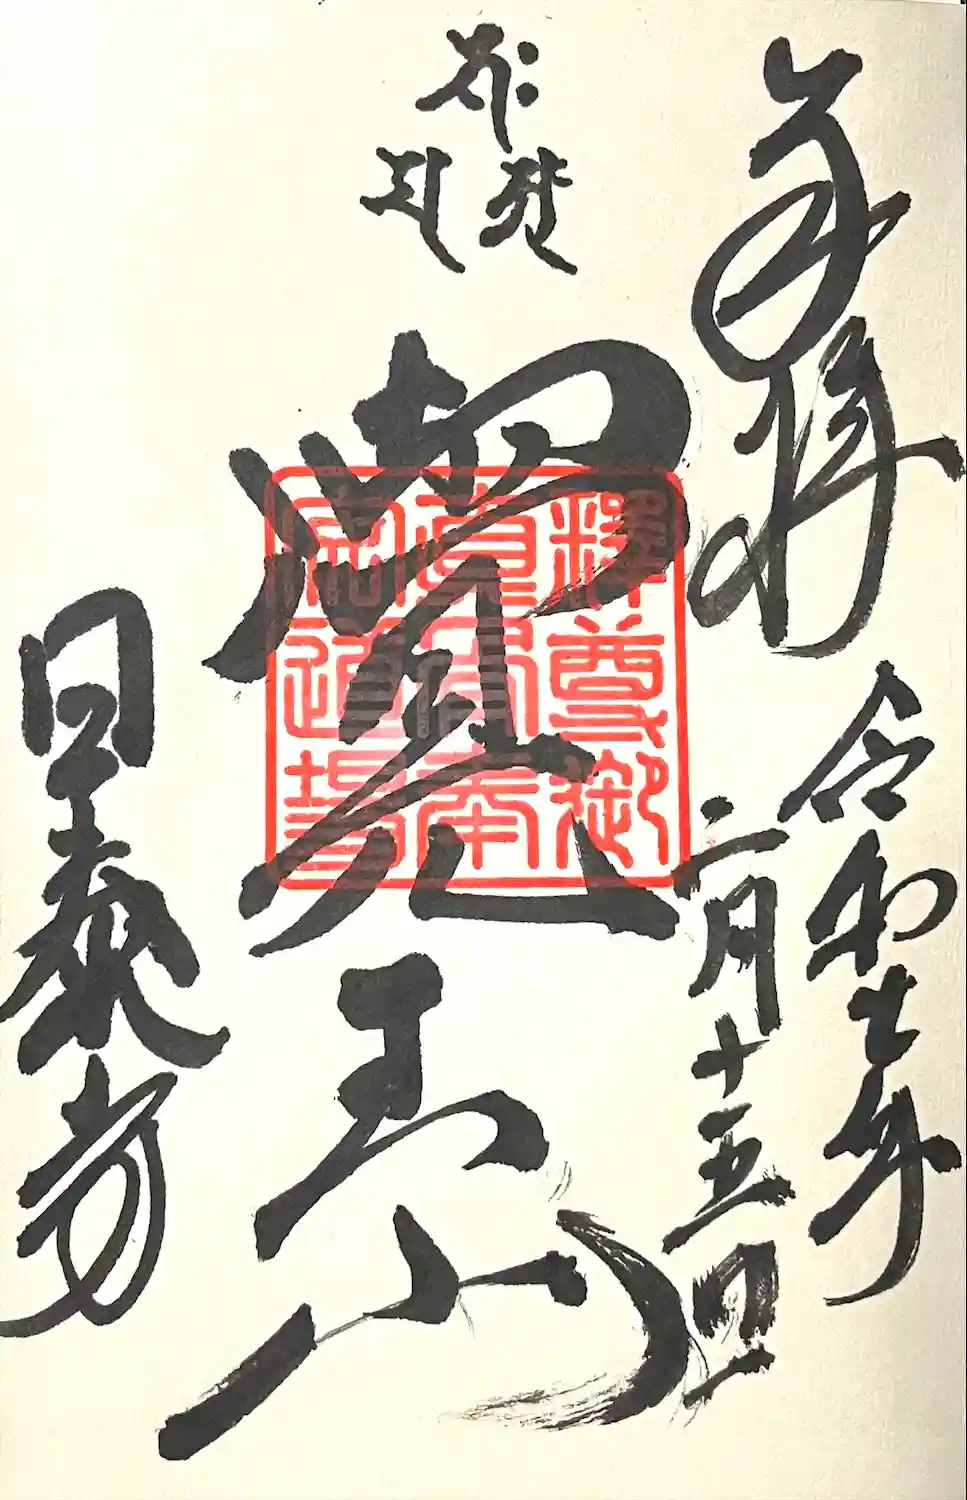 奉拝
令和七年
二月十五日
覺王山
釋尊御
真骨奉
安道場
日泰寺